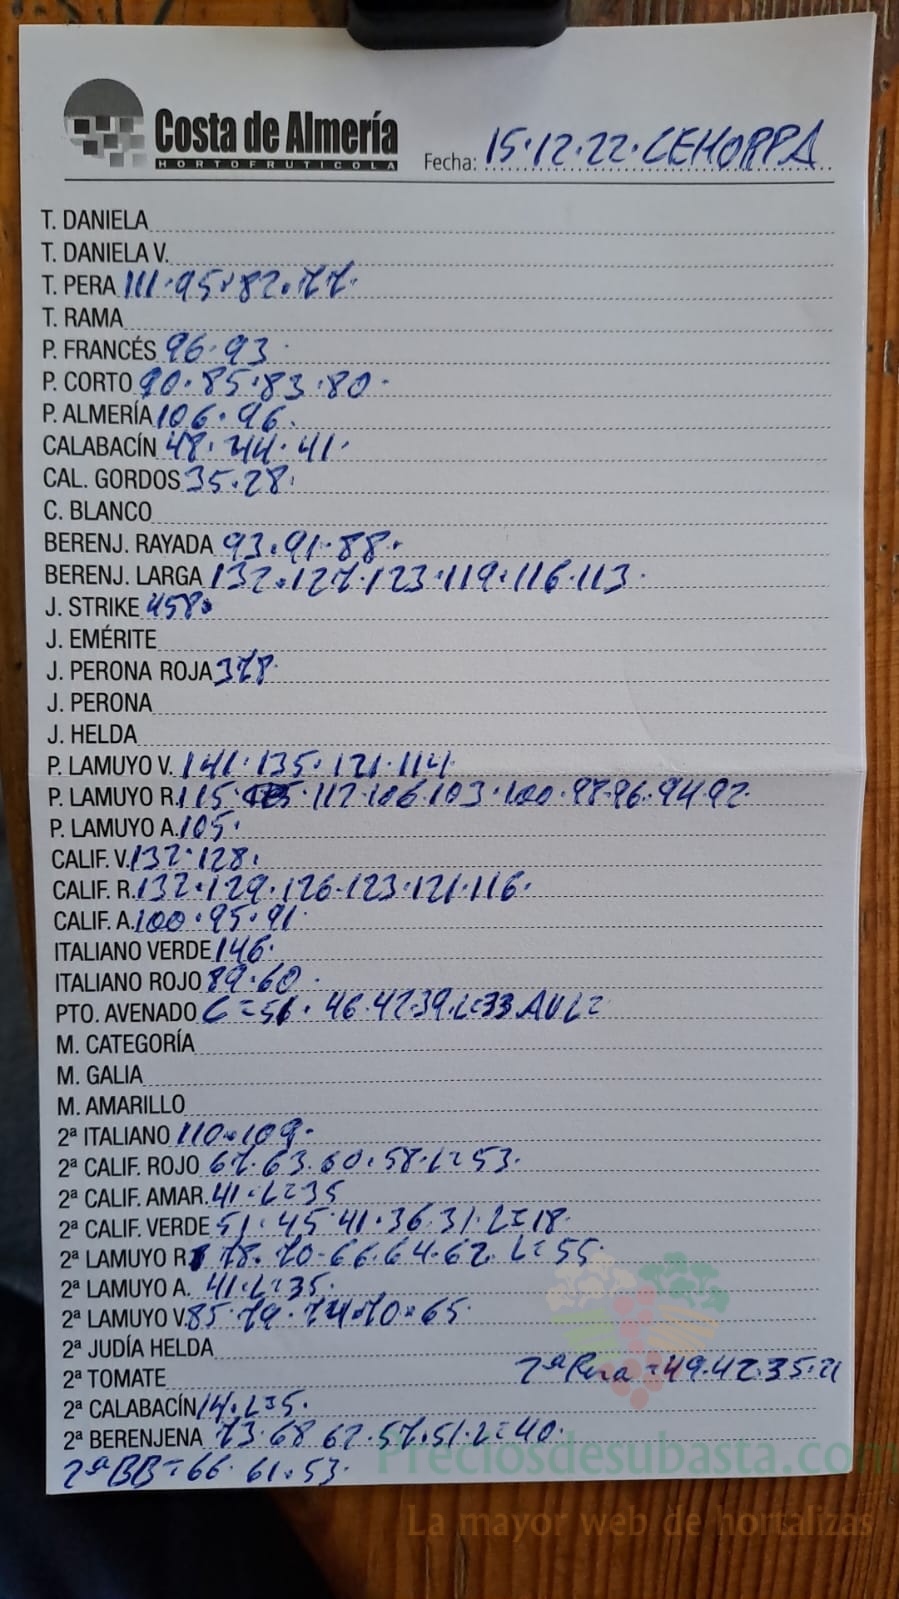 Costa de Almería
HORTOFRUTICOLA
Fecha: 15.12.22.CEHORPA
T. DANIELA
T. DANIELA V.
T. PERA 111.95.82.77.
T. RAMA
P. FRANCÉS 96.93.
P. CORTO 90.85.83.80.
P. ALMERÍA 106.96.
CALABACÍN 48.44.41.
CAL. GORDOS 35.28.
C. BLANCO
BERENJ. RAYADA 93.91.88.
BERENJ. LARGA 132.127.123.119.116.113.
J. STRIKE 458.
J. EMÉRITE
J. PERONA ROJA 378.
J. PERONA
J. HELDA
P. LAMUYO V. 141.135.121.114.
P. LAMUYO R. 115. 112.106.103.100.98.96.94.92.
P. LAMUYO A. 105.
CALIF. V. 132.128.
CALIF. R. 132.129.126.123.121.116.
CALIF. A. 100.95.91.
ITALIANO VERDE 146.
ITALIANO ROJO 89.60.
PTO. AVENADO C=51.46.42.39.L=33
M. CATEGORÍA
M. GALIA
M. AMARILLO
2ª ITALIANO 110.109.
2ª CALIF. ROJO 67.63.60.58.L=53.
2ª CALIF. AMAR. 41.L=35
2ª CALIF. VERDE 51.45.41.36.31.L=18.
2ª LAMUYO R. 78.70.66.64.62.L=55.
2ª LAMUYO A. 41.L=35.
2ª LAMUYO V. 85.79.74.70.65.
2ª JUDÍA HELDA
2ª TOMATE 2ª Pera=49.42.35.21
2ª CALABACÍN 14.L=5.
2ª BERENJENA 73.68.62.57.51.L=40.
2ª BB=66.61.53.
Preciosdesubasta.com
La mayor web de hortalizas